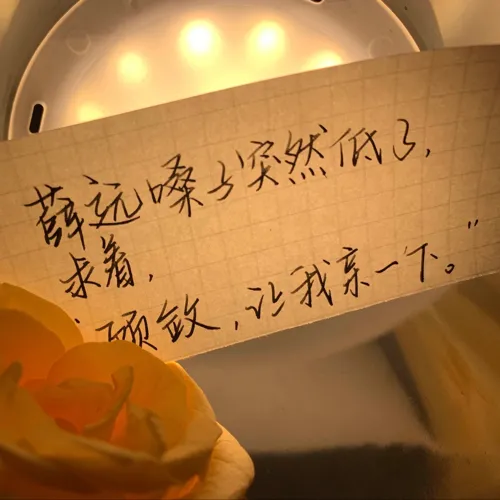 薛远嗓子突然低了，
求着，
“顾敛，让我亲一下。”